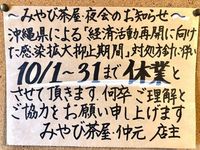 ～みやび茶屋・夜会のお知らせ～
沖縄県による「経済活動再開に向け
た感染拡大抑止期間」対処方針に伴い
10/1～31まで休業と
させて頂きます。何卒ご理解と
ご協力をお願い申し上げます
みやび茶屋・仲元 店主